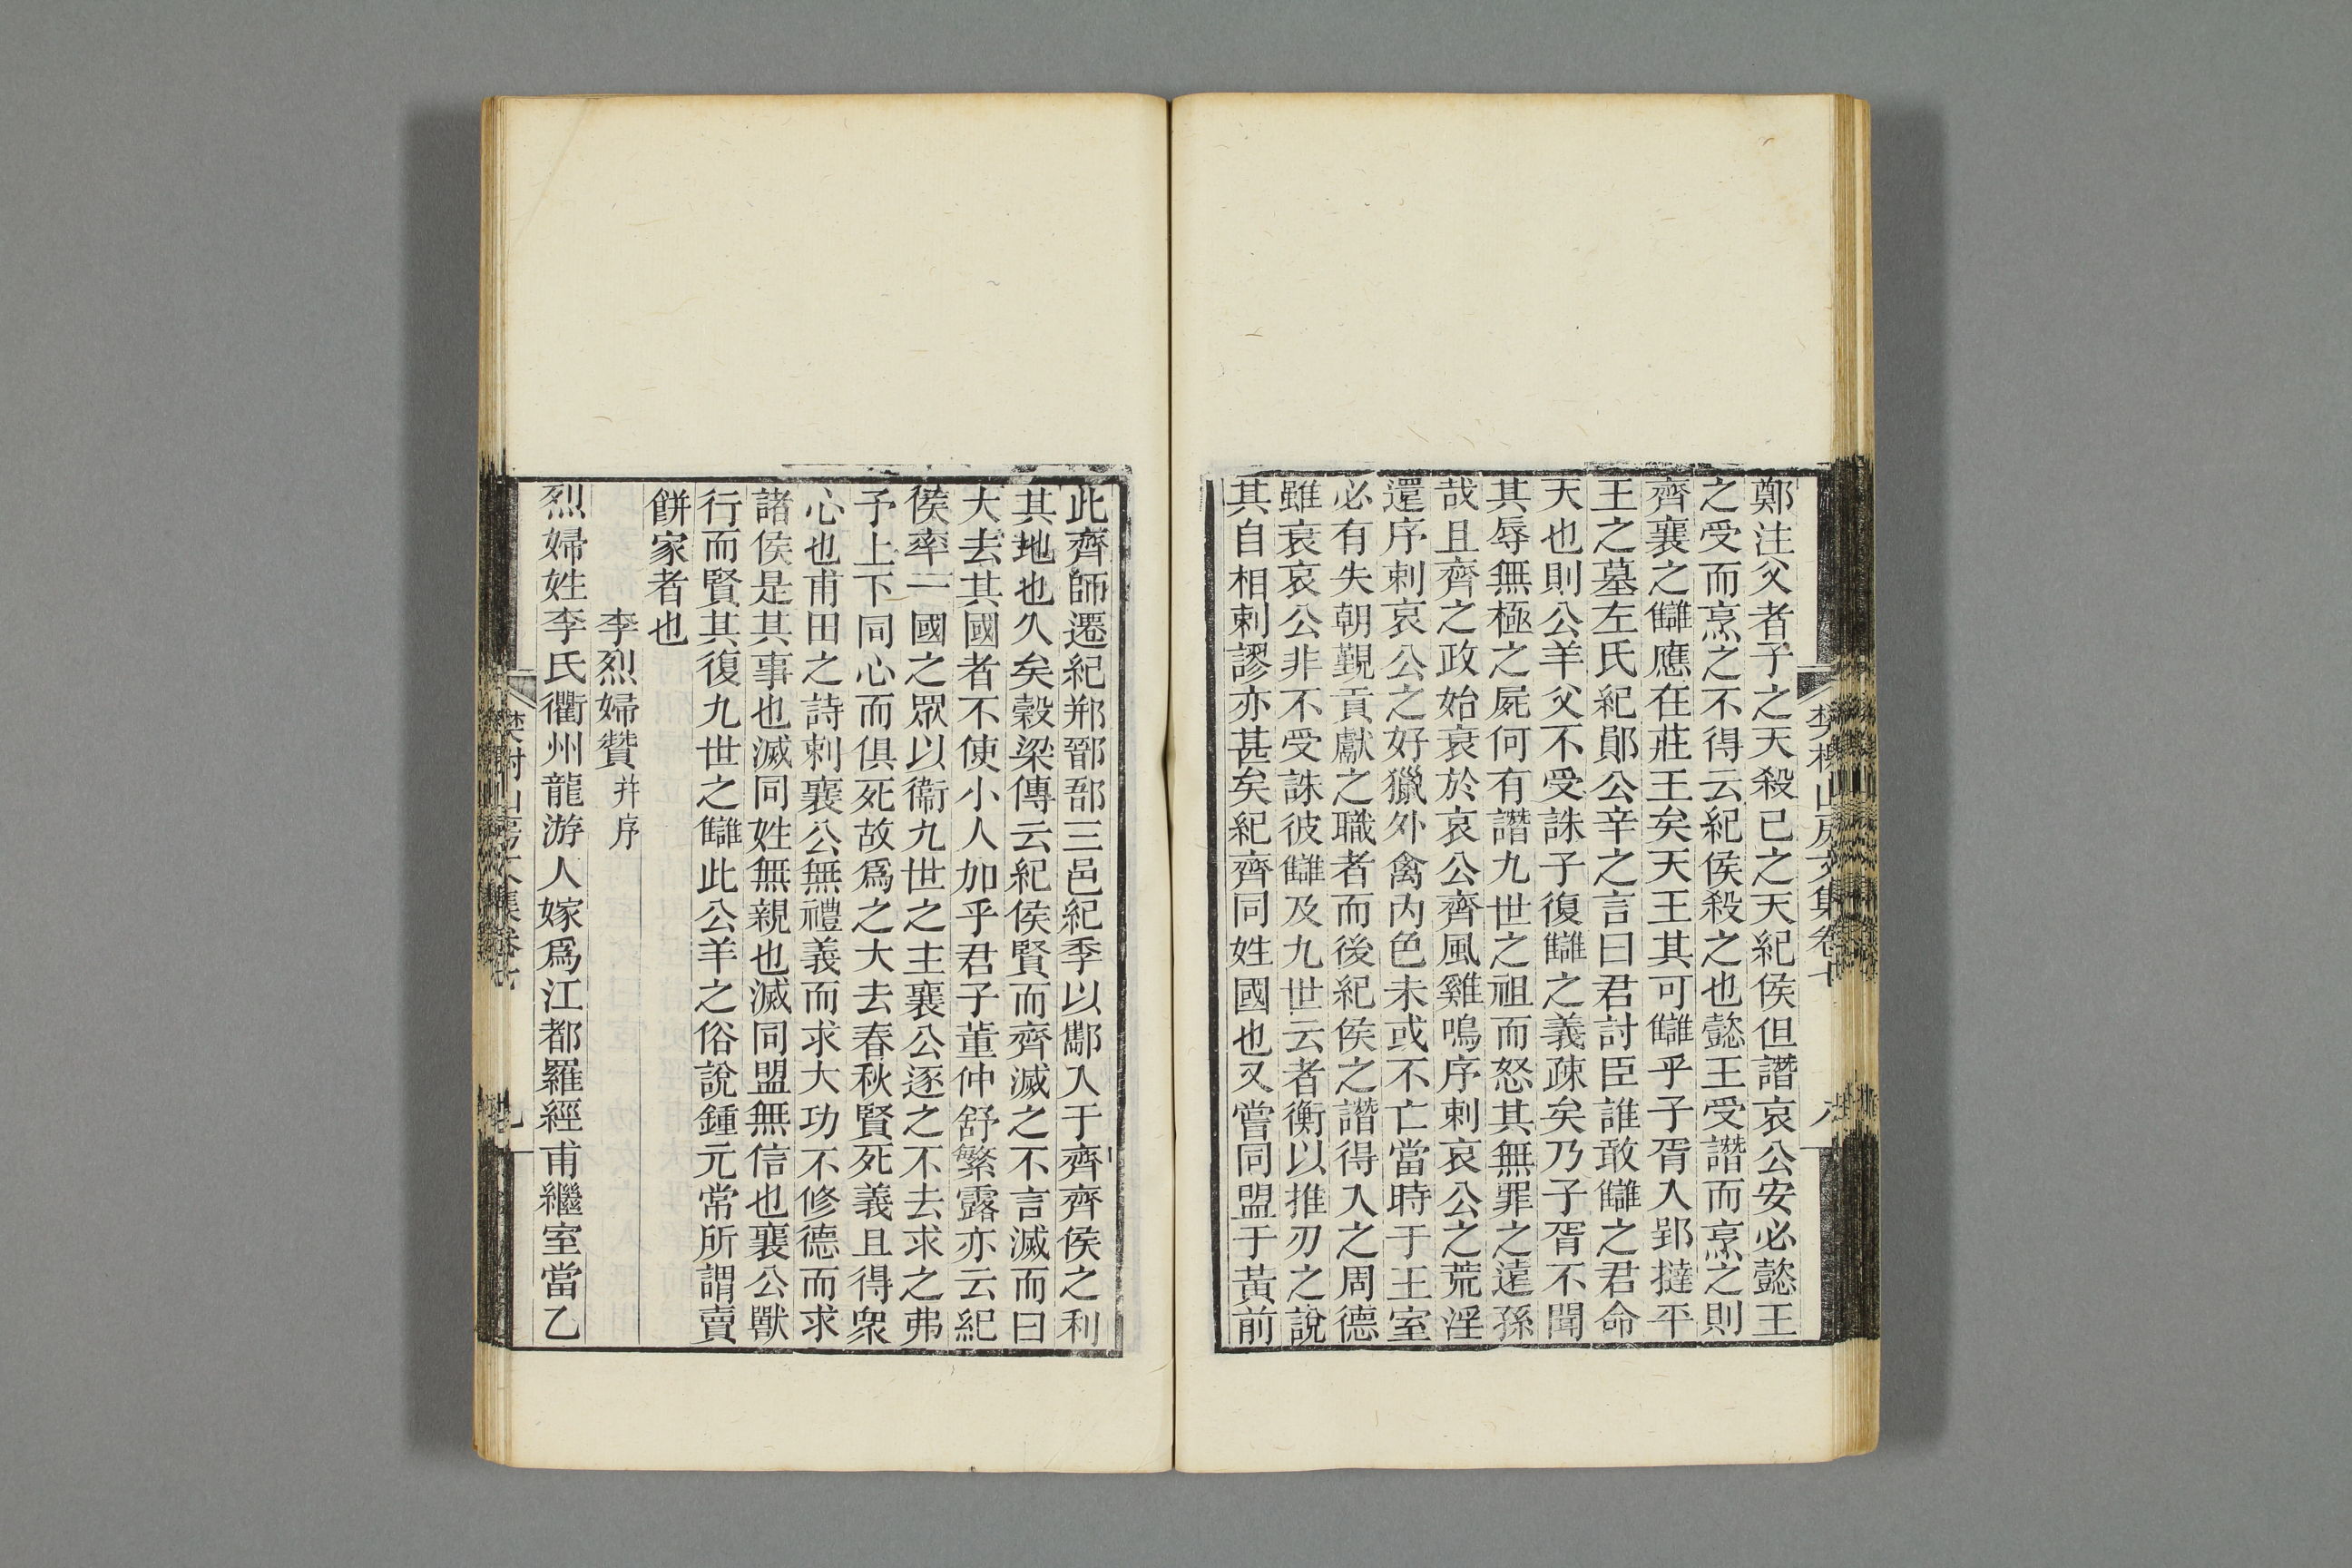 鄭注父者子之天殺己之天紀侯但譖哀公安必懿王
之受而烹之不得云紀侯殺之也懿王受譖而烹之則
齊襄之讎應在莊王矣天王其可讎乎子胥入郢撻平
王之墓左氏紀鄖公辛之言曰君討臣誰敢讎之君命
天也則公羊父不受誅子復讎之義疎矣乃子胥不聞
其辱無極之屍何有譖九世之祖而怒其無罪之遠孫
哉且齊之政始衰於哀公齊風雞鳴序刺哀公之荒淫
還序刺哀公之好獵外禽內色未或不亡當時于王室
必有失朝覲貢獻之職者而後紀侯之譖得入之周德
雖衰哀公非不受誅彼讎及九世云者衡以推刃之說
其自相剌謬亦甚矣紀齊同姓國也又嘗同盟于黃前
此齊師遷紀郱鄑郚三邑紀季以酅入于齊齊侯之利
其地也久矣穀梁傳云紀侯賢而齊滅之不言滅而曰
大去其國者不使小人加乎君子董仲舒繁露亦云紀
侯率一國之眾以衞九世之主襄公逐之不去求之弗
予上下同心而俱死故爲之大去春秋賢死義且得衆
心也甫田之詩刺襄公無禮義而求大功不修德而求
諸侯是其事也滅同姓無親也滅同盟無信也襄公獸
行而賢其復九世之讎此公羊之俗說鍾元常所謂賣
餅家者也
李烈婦贊并序
烈婦姓李氏衢州龍游人嫁爲江都羅經甫繼室當乙